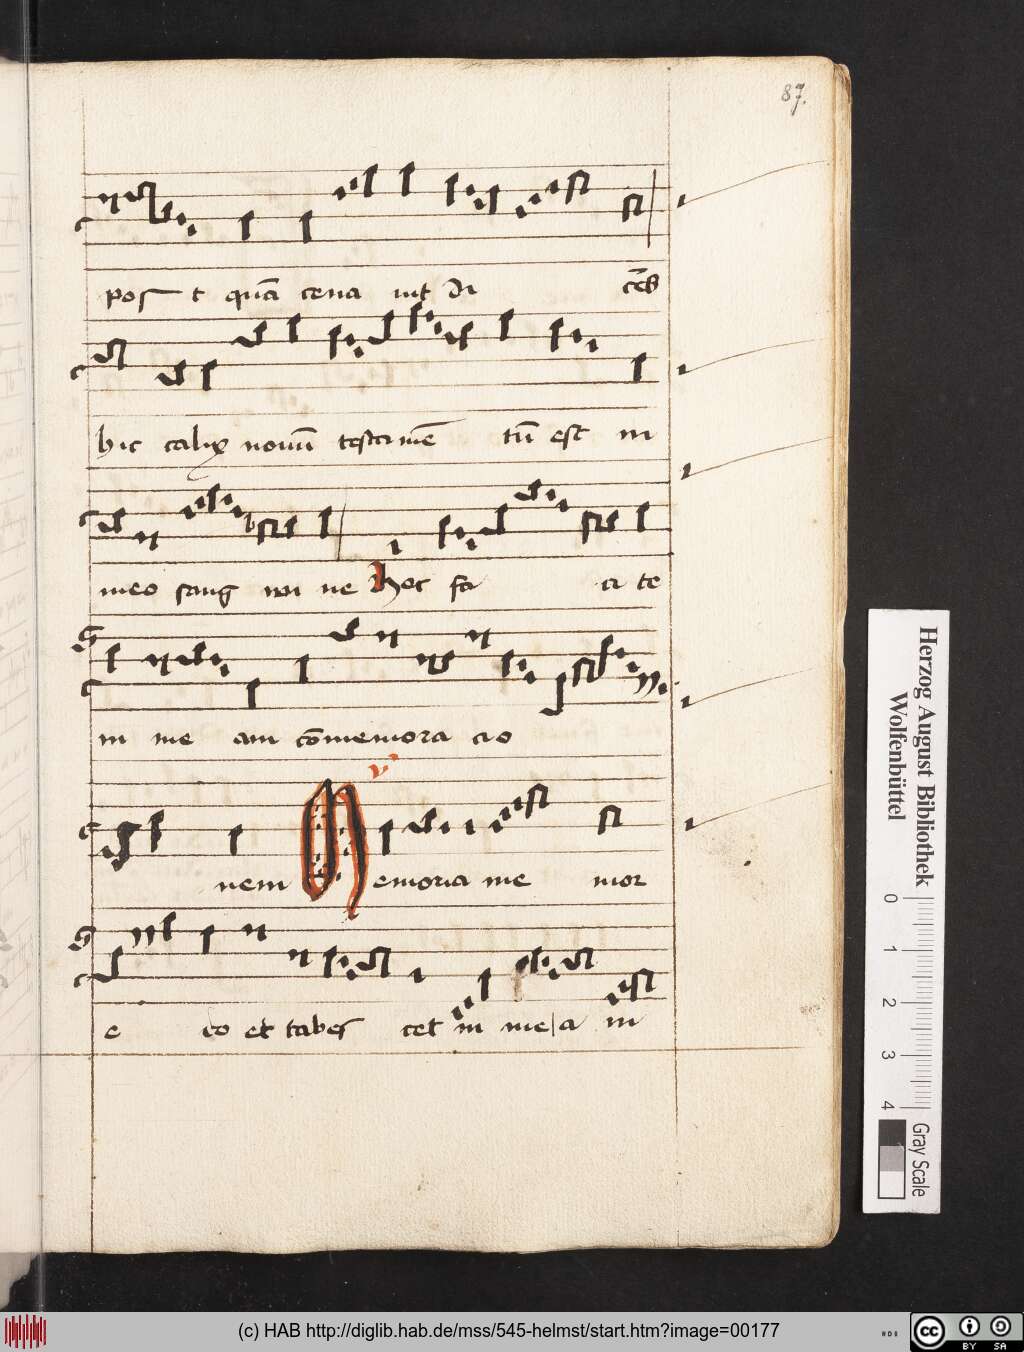 87.
post quā cena uit Di cēs
hic calix nouū testamē tū est in
meo sang wi ne hoc fa ci te
in me am cōmemora cio
v
nem Memoria me mor
e ro et tabes cet in me a in
Herzog August Bibliothek
Wolfenbüttel
0 1 2 3 4
Gray Scale
(c) HAB http://diglib.hab.de/mss/545-helmst/start.htm?image=00177
cc BY SA